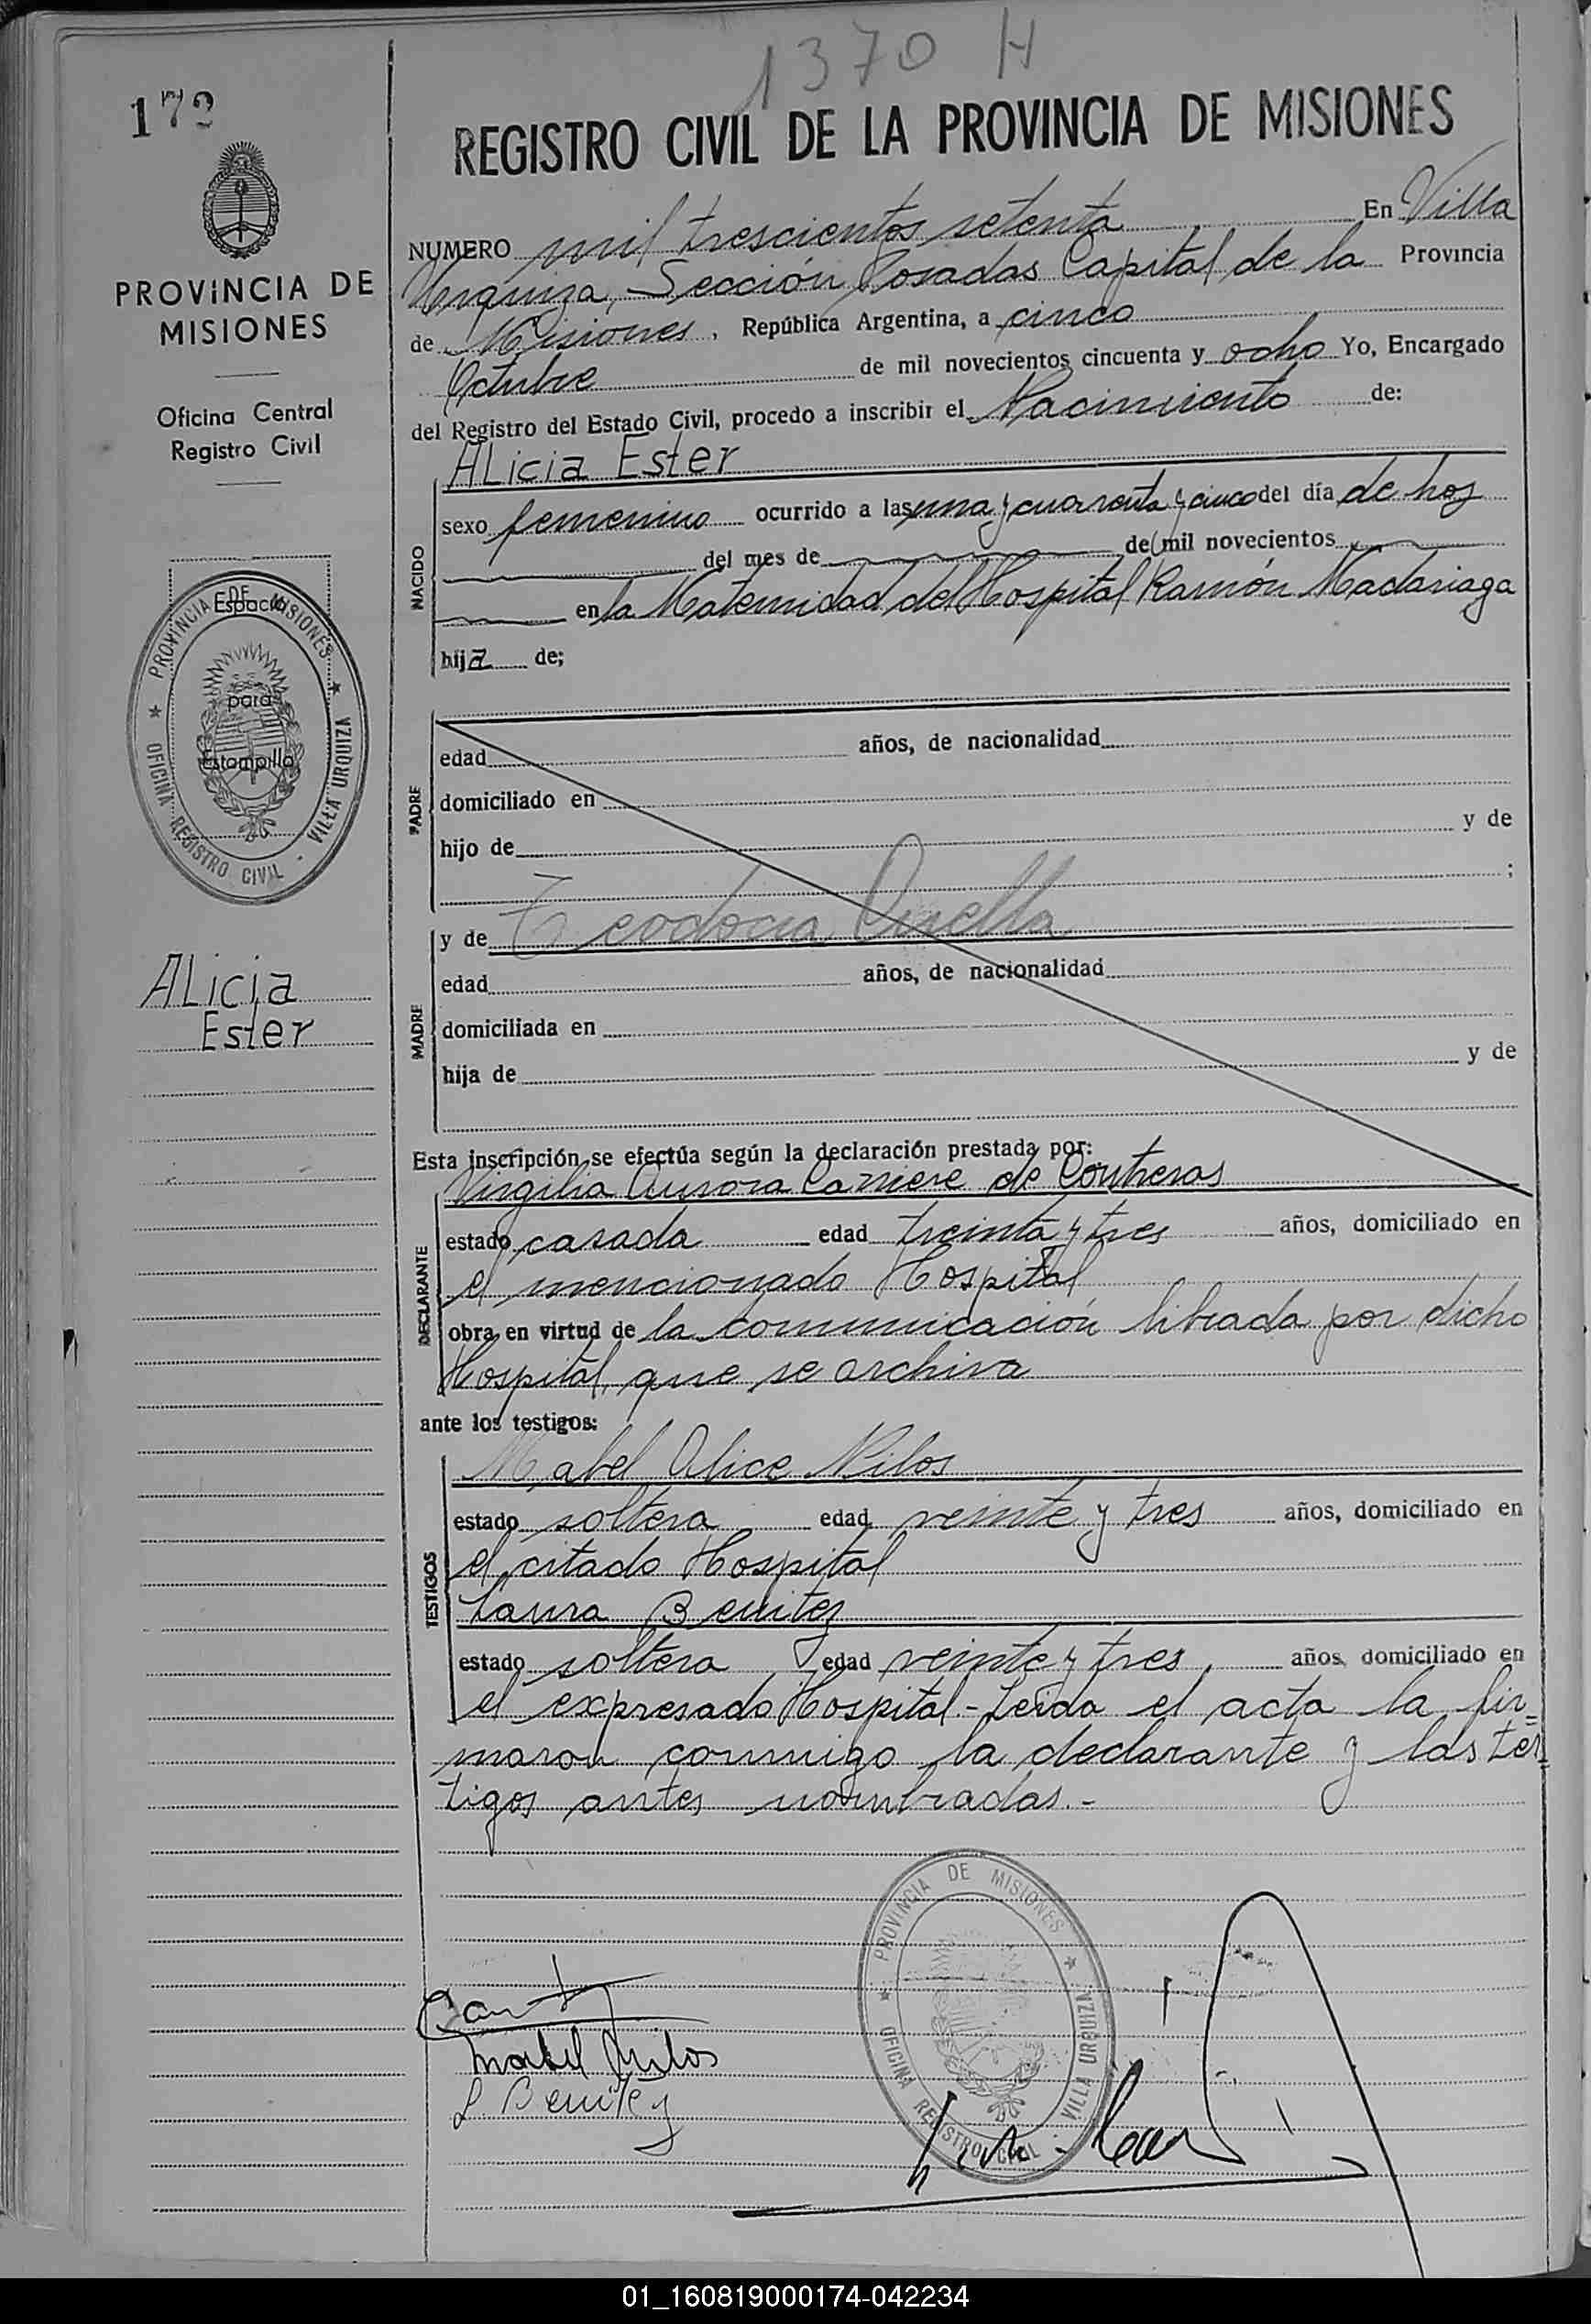 1370 H
172
REGISTRO CIVIL DE LA PROVINCIA DE MISIONES
PROVINCIA DE
MISIONES
Oficina Central
Registro Civil
PROVINCIA DE MISIONES
OFICINA REGISTRO CIVIL - VILLA URQUIZA
Espacio
para
Estampilla
Alicia
Ester
NUMERO mil trescientos setenta En Villa
Urquiza, Sección Posadas Capital de la Provincia
de Misiones, República Argentina, a cinco
Octubre de mil novecientos cincuenta y ocho Yo, Encargado
del Registro del Estado Civil, procedo a inscribir el Nacimiento de:
Alicia Ester
NACIDO
sexo femenino ocurrido a las una y cuarenta y cinco del día de hoy
del mes de de mil novecientos
en la Maternidad del Hospital Ramón Madariaga
hija de;
PADRE
edad años, de nacionalidad
domiciliado en
hijo de y de
;
y de Teodocia
MADRE
edad años, de nacionalidad
domiciliada en
hija de y de
Esta inscripción se efectúa según la declaración prestada por:
Virgilia Aurora de Contreras
DECLARANTE
estado casada edad treinta y tres años, domiciliado en
el mencionado Hospital
obra en virtud de la comunicación librada por dicho
Hospital, que se archiva
ante los testigos:
Mabel Alice Nilos
TESTIGOS
estado soltera edad veinte y tres años, domiciliado en
el citado Hospital
Laura Benitez
estado soltera edad veinte y tres, años, domiciliado en
el expresado Hospital - Leída el acta la fir=
maron conmigo la declarante y las tes=
tigos antes nombradas.-
PROVINCIA DE MISIONES
OFICINA REGISTRO CIVIL VILLA URQUIZA
Mabel Nilos
L. Benitez
01_160819000174-042234